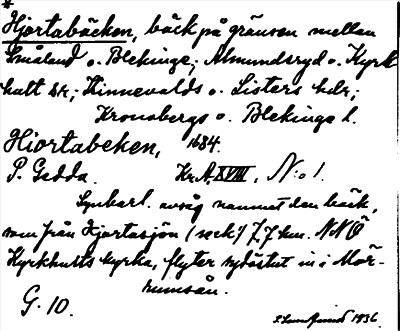 *
Hjortabäcken, bäck på gränsen mellan
Småland o. Blekinge; Almundsryd o. Kyrk-
hult sr; Kinnevalds o. Listers hdr;
Kronobergs o. Blekinge l.
Hiortabeken, 1684.
P. Gedda. Kr.A. XVIII, N:o 1.
Synbarl. avsåg namnet den bäck,
som från Hjortasjön (se ek!) 7,7 km. NNÖ
Kyrkhults kyrka, flyter sydöstut in i Mör-
rumsån.
G. 10.
1936